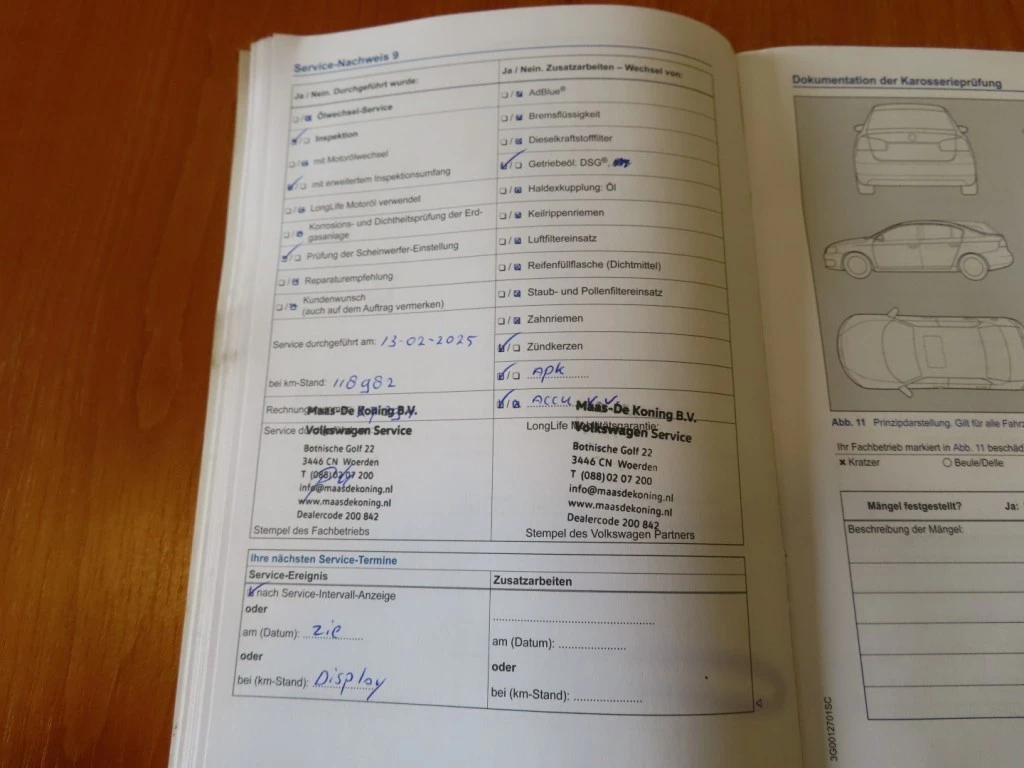 Service-Nachweis 9
Ja / Nein. Durchgeführt wurde:
Ölwechsel-Service
Inspektion
mit Motorölwechsel
mit erweitertem Inspektionsumfang
LongLife Motoröl verwendet
Korrosions- und Dichtheitsprüfung der Erd-
gasanlage
Prüfung der Scheinwerfer-Einstellung
Reparaturempfehlung
Kundenwunsch
(auch auf dem Auftrag vermerken)
Service durchgeführt am: 13-02-2025
bei km-Stand: 118982
Maas-De Koning B.V.
Volkswagen Service
Botnische Golf 22
3446 CN Woerden
T (088) 02 07 200
info@maasdekoning.nl
www.maasdekoning.nl
Dealercode 200 842
Stempel des Fachbetriebs
Ja / Nein. Zusatzarbeiten – Wechsel von:
AdBlue®
Bremsflüssigkeit
Dieselkraftstofffilter
Getriebeöl: DSG®,
Haldexkupplung: Öl
Keilrippenriemen
Luftfiltereinsatz
Reifenfüllflasche (Dichtmittel)
Staub- und Pollenfiltereinsatz
Zahnriemen
Zündkerzen
APK
ACCU
Maas-De Koning B.V.
LongLife Mobilitätsgarantie:
Volkswagen Service
Botnische Golf 22
3446 CN Woerden
T (088) 02 07 200
info@maasdekoning.nl
www.maasdekoning.nl
Dealercode 200 842
Stempel des Volkswagen Partners
Ihre nächsten Service-Termine
Service-Ereignis
nach Service-Intervall-Anzeige
oder
am (Datum): zie
oder
bei (km-Stand): Display
Zusatzarbeiten
am (Datum):
oder
bei (km-Stand):
Dokumentation der Karosserieprüfung
Abb. 11 Prinzipdarstellung. Gilt für alle
Ihr Fachbetrieb markiert in Abb. 11
x Kratzer
Beule/Delle
Mängel festgestellt? Ja:
Beschreibung der Mängel:
3G0012701SC